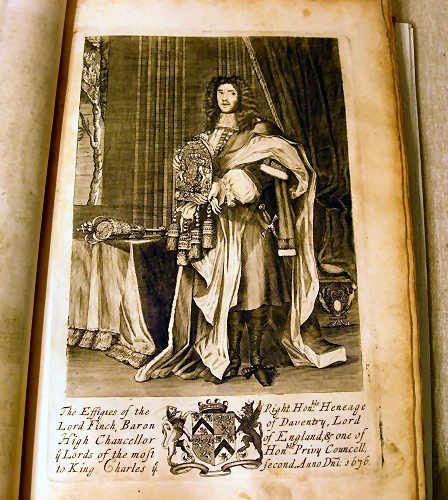 The Effigies of the ẏ Right Hon:ble Heneage
Lord Finch, Baron of Daventry, Lord
High Chancellor of England, & one of
ẏ Lords of the moſt Hon:ble Privy Councell,
to King Charles ẏ ſecond. Anno Dni: 1676.